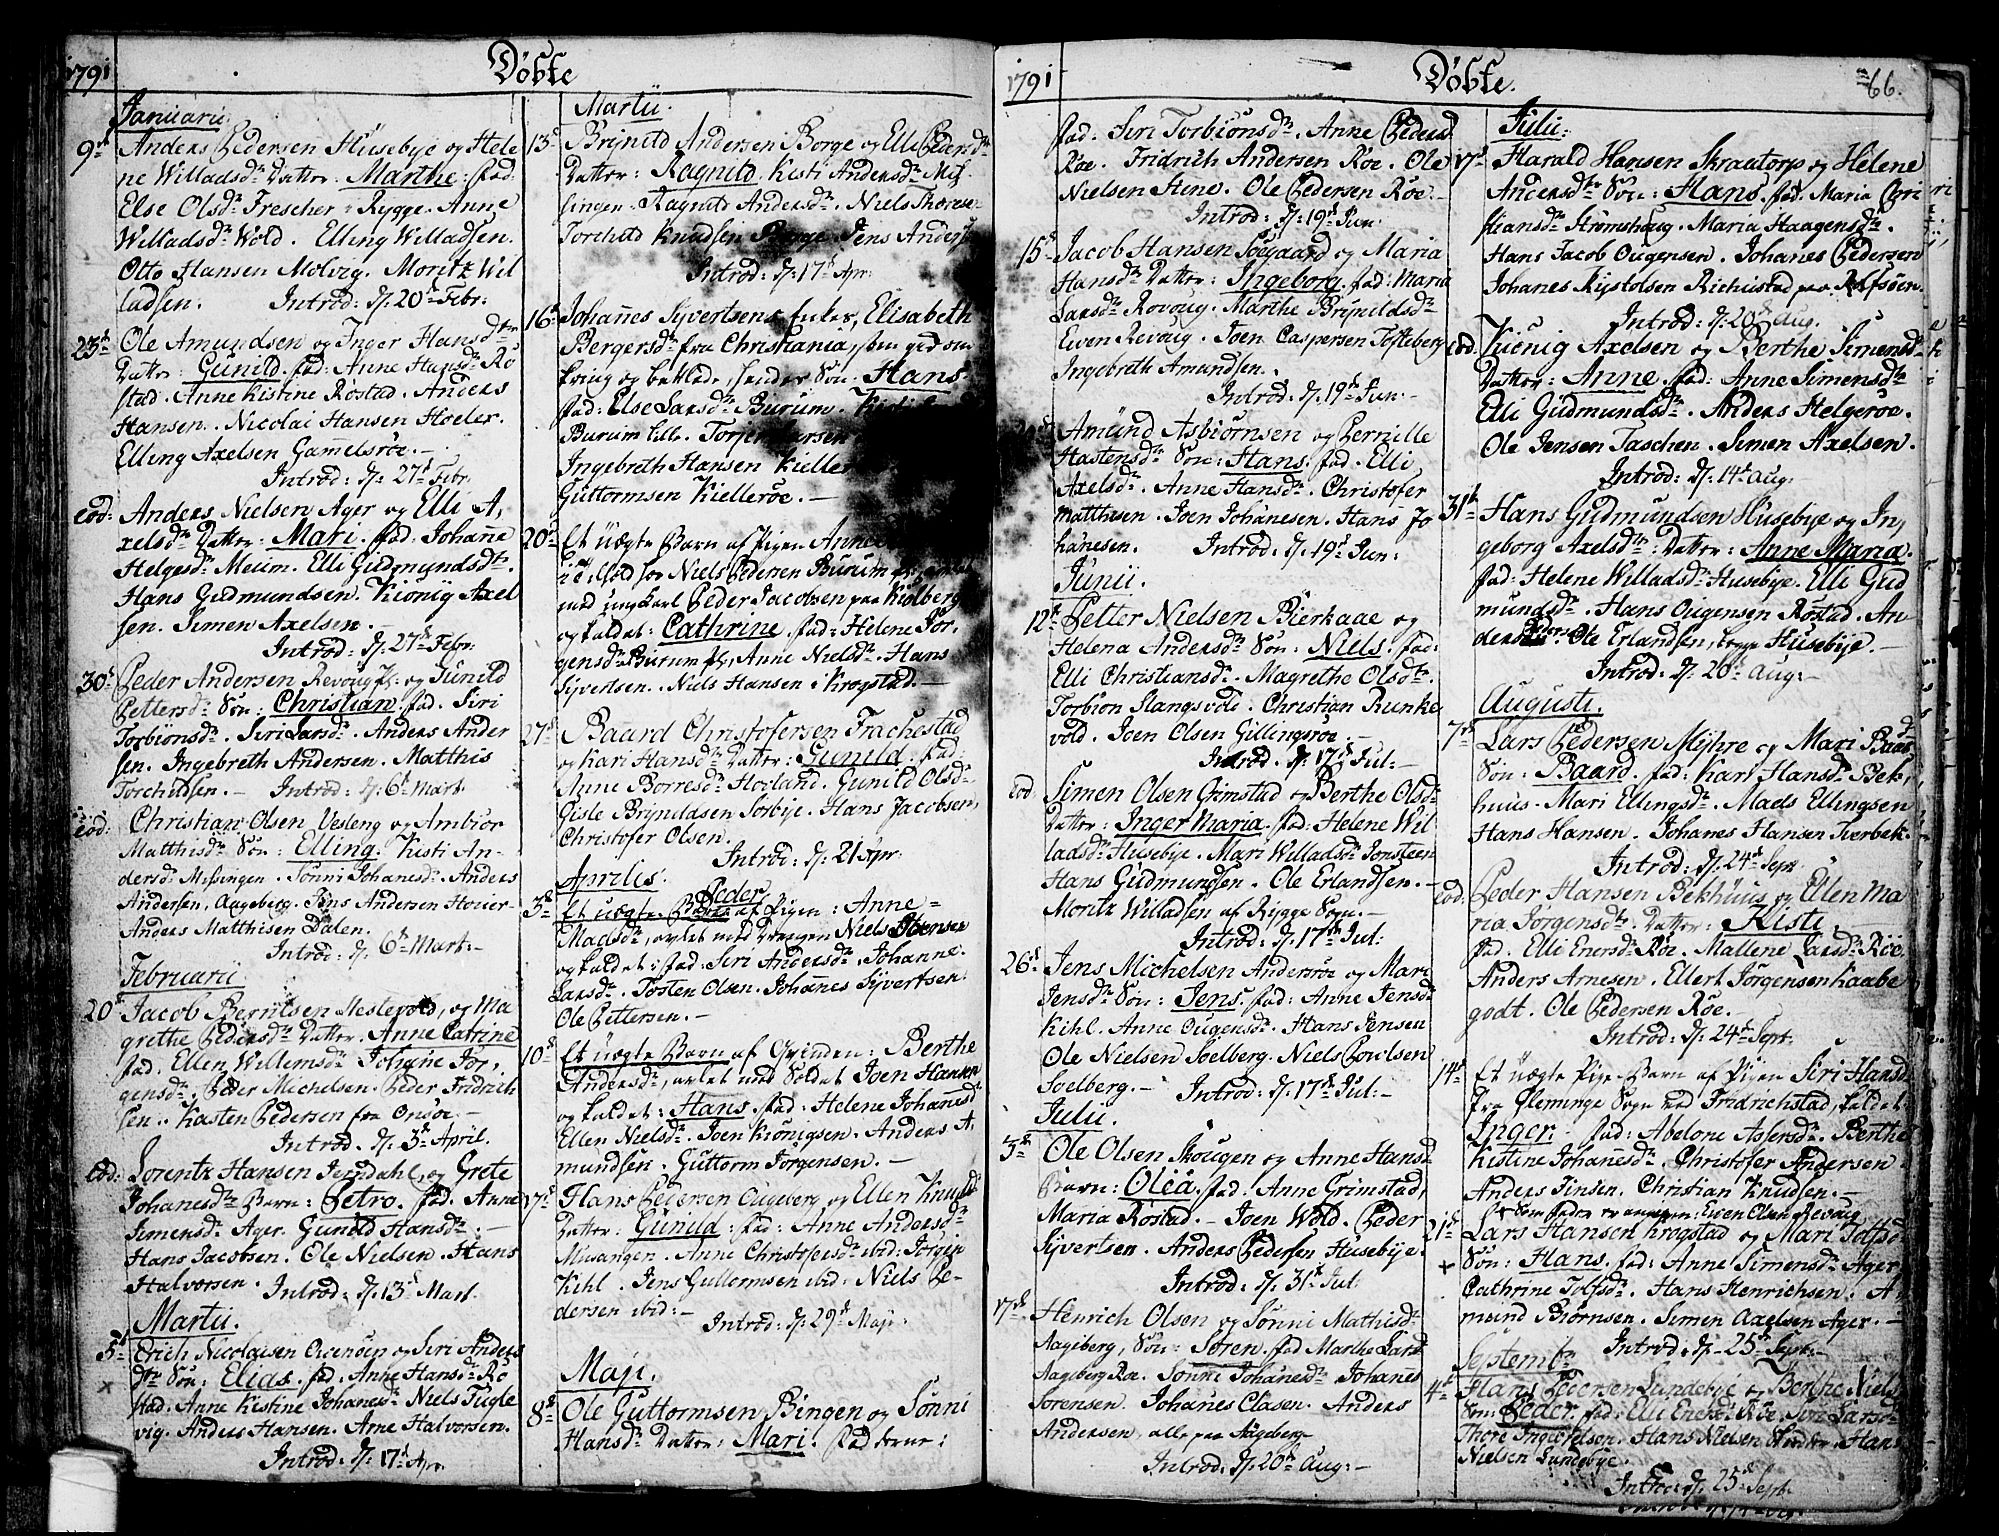 1791 Döbte
Januarii.
9de Anders Pedersen Husebye og Hele
ne Willadsdr Datter: Marthe. fad:
Else Olsdr Frescher i Rygge. Anne
Willadsdr Wold. Elling Willadsen.
Otto Hansen Molvig. Moritz Wil
ladsen. Introd: d: 20de Febr:
23de Ole Amundsen og Inger Hansdtr
Datter: Gunild. fad: Anne Hansdr Rö
stad. Anne Kistine Röstad. Anders
Hansen. Nicolai Hansen Hoeler.
Elling Axelsen Gammelsröe.
Introd: d: 27de Febr:
eod: Anders Nielsen Ager og Elli A,
xelsdr Datter: Mari. fad: Johane
Helgesdr Meum. Elli Gudmundsdtr.
Hans Gudmundsen. Kiönig Axel
sen. Simen Axelsen.
Introd: d: 27de Febr:
30de Peder Andersen Revoug Pl: og Gunild
Pettersdr Sön: Christian. fad. Siri
Torbionsdr. Siri Larsdr. Anders Ander
sen. Ingebreth Andersen. Matthis
Torchildsen. Introd: d: 6te Mart:
eod: Christian Olsen Vesleng og Ambior
Matthisdr Sön: Elling. Kisti An-
dersdr Messingen. Sönni Johanesdr. Anders
Andersen, Aageberg. Jens Andersen Hover
Anders Matthisen Dalen.
Introd: d: 6te Mart:
Februarii
20de Jacob Berntsen Nestevold, og Ma
grethe Pedersdr Datter. Anne Catrine
fad. Ellen Willemsdr Johane Jör,
gensdr. Peder Michelsen. Peder Fridrich
sen. Karsten Pedersen fra Onsöe.
Introd. d. 3de April.
eod: Lorentz Hansen Jendahl, og Grete
Johanesdtr Barn: Petro. fad. Anne
Simensdr Ager. Gunild Hansdr.
Hans Jacobsen. Ole Nielsen. Hans
Halvorsen. Introd: d: 13de Mart.
Martii.
5te Erich Nicolaisen og Siri Anders
dtr Sön: Elias. fad. Anne Hansdr Rö
stad. Anne Kistine Johanesdr Niels Fugle
vig. Anders Hansen. Arne Halvorsen.
Introd: d: 17de Apr.
Martii.
13de Brynild Andersen Borge og Elli Pedersdr
Datter: Ragnild. Kisti Andersdr Mes
singen. Ragnild Andersdr. Niels Thoresen
Torchild Knudsen Borge Jens Anders
Introd: d: 17de Apr:
16de Johanes Syvertsens Enke, Elisabeth
Bergersdr fra Christiania, som gik om
kring og betlede, hendes Sön: Hans
fad: Else Larsdr Burum. Kisti
Burum lille. Torjer Larsen
Ingebreth Hansen Kieller
Guttormsen Kielleröe.
20de Et uægte Barn af Pigen Anne
Niels Pedersen Burum
med ungkarl Peder Jacobsen paa Kiölberg
og kaldet: Cathrine. fad: Helene Jör,
gensdr Burum pl, Anne Nielsdr. Hans
Syvertsen. Niels Hansen i Krogstad.
27de Baard Christofersen Frachestad
og Kari Hansdr Datter: Gunild. fad:
Anne Borresdr Horland. Gunild Olsdr
Gisle Brynildsen Sorbye. Hans Jacobsen,
Christofer Olsen.
Introd: d: 21 Apr:
Aprilis.
Peder
3de Et uægte Barn af Pigen: Anne
Madsdr, avlet med Drengen Niels Thoresen
og kaldet: fad: Siri Andersdr. Johanne
Larsdr. Tosten Olsen. Johanes Syvertsen
Ole Pettersen.
10de Et uægte Barn af Qvinden: Berthe
Andersdr, avlet med Soldat Joen Hansen
og kaldet: Hans. fad: Helene Johanesdr
Ellen Nielsdr. Joen Krönigsen. Anders A
mundsen. Guttorm Jörgensen.
17de Hans Pedersen Augeberg og Ellen Knudsdr
Datter: Gunild: fad: Anne Andersdr
Musangen. Anne Christofersdr ibid: Jörgen
Kihl. Jens Guttormsen ibid: Niels Pe-
dersen ibid:
Introd: d: 29de Maji:
Maji.
8de Ole Guttormsen Bingen og Sönni
Hansdr Datter: Mari. fadderne:
1791 Döbte. 66.
fad: Siri Torbiönsdr. Anne Pedersdr
Röe. Fridrich Andersen Röe. Ole
Nielsen Stene. Ole Pedersen Röe.
Introd: d: 19de Jun:
15de Jacob Hansen Soegaard og Maria
Hansdr Datter: Ingeborg. fad: Maria
Larsdr Rovoug. Marthe Brynildsdr
Even Revoug. Joen Caspersen Tofteberg
Ingebreth Amundsen.
Introd: d: 19de Jun:
Amund Asbiörnsen og Pernille
Hastensdr Sön: Hans. fad. Elli
Axelsdr. Anne Hansdr. Christofer
Matthisen. Joen Johanesen. Hans Jo
hanesen. Introd: d: 19de Jun:
Junii.
12te Petter Nielsen Bierkaae og
Helena Andersdr Sön: Niels. fad:
Elli Christiansdr. Magrethe Olsdtr.
Torbion Slangsvold. Christian Runke
vold. Joen Olsen Gillingsröe.
Introd. d. 17de Jul:
eod. Simen Olsen Grimstad og Berthe Olsdr
Datter: Inger Maria. fad: Helene Wil
ladsdr Husebye. Mari Willadsdr Jonsteen
Hans Gudmundsen. Ole Erlandsen.
Moritz Willadsen af Rygge Sogn.
Introd: d: 17de Jul:
26de Jens Michelsen Andersröe og Mari
Jensdr Sön: Jens. fad: Anne Jensdr
Kihl. Anne Ougensdr. Hans Jensen
Ole Nielsen Soelberg. Niels Povelsen
Soelberg. Introd: d: 17de Jul:
Julii.
3de Ole Olsen Skougen og Anne Hansdr
Barn: Olea. fad: Anne Grimstad,
Maria Röstad. Joen Wold. Peder
Syvertsen. Anders Pedersen Husebye.
Introd: d: 31te Jul:
17de Henrich Olsen og Sönni Mathisdr
Aageberg, Sön: Sören. fad Marthe Larsdr
Aageberg Röe. Sönni Johanesdr. Johanes
Sorensen. Johanes Clasen. Anders
Andersen, alle paa Aageberg
Introd: d: 20de Aug:
Julii:
17de Harald Hansen Skraatorp og Helene
Andersdtr Sön: Hans. fad. Maria Chri
stiansdr Hromshaug. Maria Haagensdtr.
Hans Jacob Ougensen. Johanes Pedersen
Johanes Kystolsen Richustad paa Rolfsöen.
Introd: d: 20de Aug.
eod. Kiönig Axelsen og Berthe Simensdr
Datter: Anne. fad: Anne Simensdtr
Elli Gudmundsdr. Anders Helgeröe.
Ole Jensen Taschen. Simen Axelsen.
Introd: d: 14de Aug:
31te Hans Gudmundsen Husebye og In,
geborg Axelsdtr: Datter: Anne Maria.
fad: Helene Willadsdr Husebye. Elli Gud
mundsdr. Hans Ougensen Röstad. An
ders Ole Erlandsen, begge Husebye.
Introd: d: 20de Aug:
Augusti.
7de Lars Pedersen Myhre og Mari Baardsdr
Sön: Baard. fad: Kari Hansdr Bek,
huus. Mari Ellingsdr. Mads Ellingsen
Hans Hansen. Johanes Hansen Tverbek.
Introd: d: 24de Sept:
eod. Peder Hansen Bekhuus og Ellen Ma
ria Jörgensdr. Datter: Kisti.
fad. Elli Enersdr Röe. Mallene Larsdr Röe.
Anders Arnesen. Ellert Jörgensen Kaabe
godt. Ole Pedersen Röe.
Introd: d: 24de Sept:
14de Et uægte Pige-Barn af Pigen Siri Hansdr
fra Gleminge Sogn ved Fridrichstad, kaldet:
Inger. fad: Abelone Assersdr. Berthe
Kistine Johanesdr. Christofer Andersen
Anders Jensen. Christian Knudsen.
Som fader er angiven: Even Olsen Revoug
21de Lars Hansen Krogstad og Mari Tolfsdr
Sön: Hans. fad: Anne Simensdr Ager.
Cathrine Tolfsdr. Hans Henrichsen. A
mund Biörnsen. Simen Axelsen Ager.
Introd: d: 25de Sept:
Septembr.
4de Hans Pedersen Sundebye og Berthe Nielsdr
Sön: Peder. fad: Elli Enersdr Röe. Siri Larsdr
Thore Ingebretsen. Hans Nielsen. Hans
Nielsen Sundebye.
Introd: d: 25de Sept.